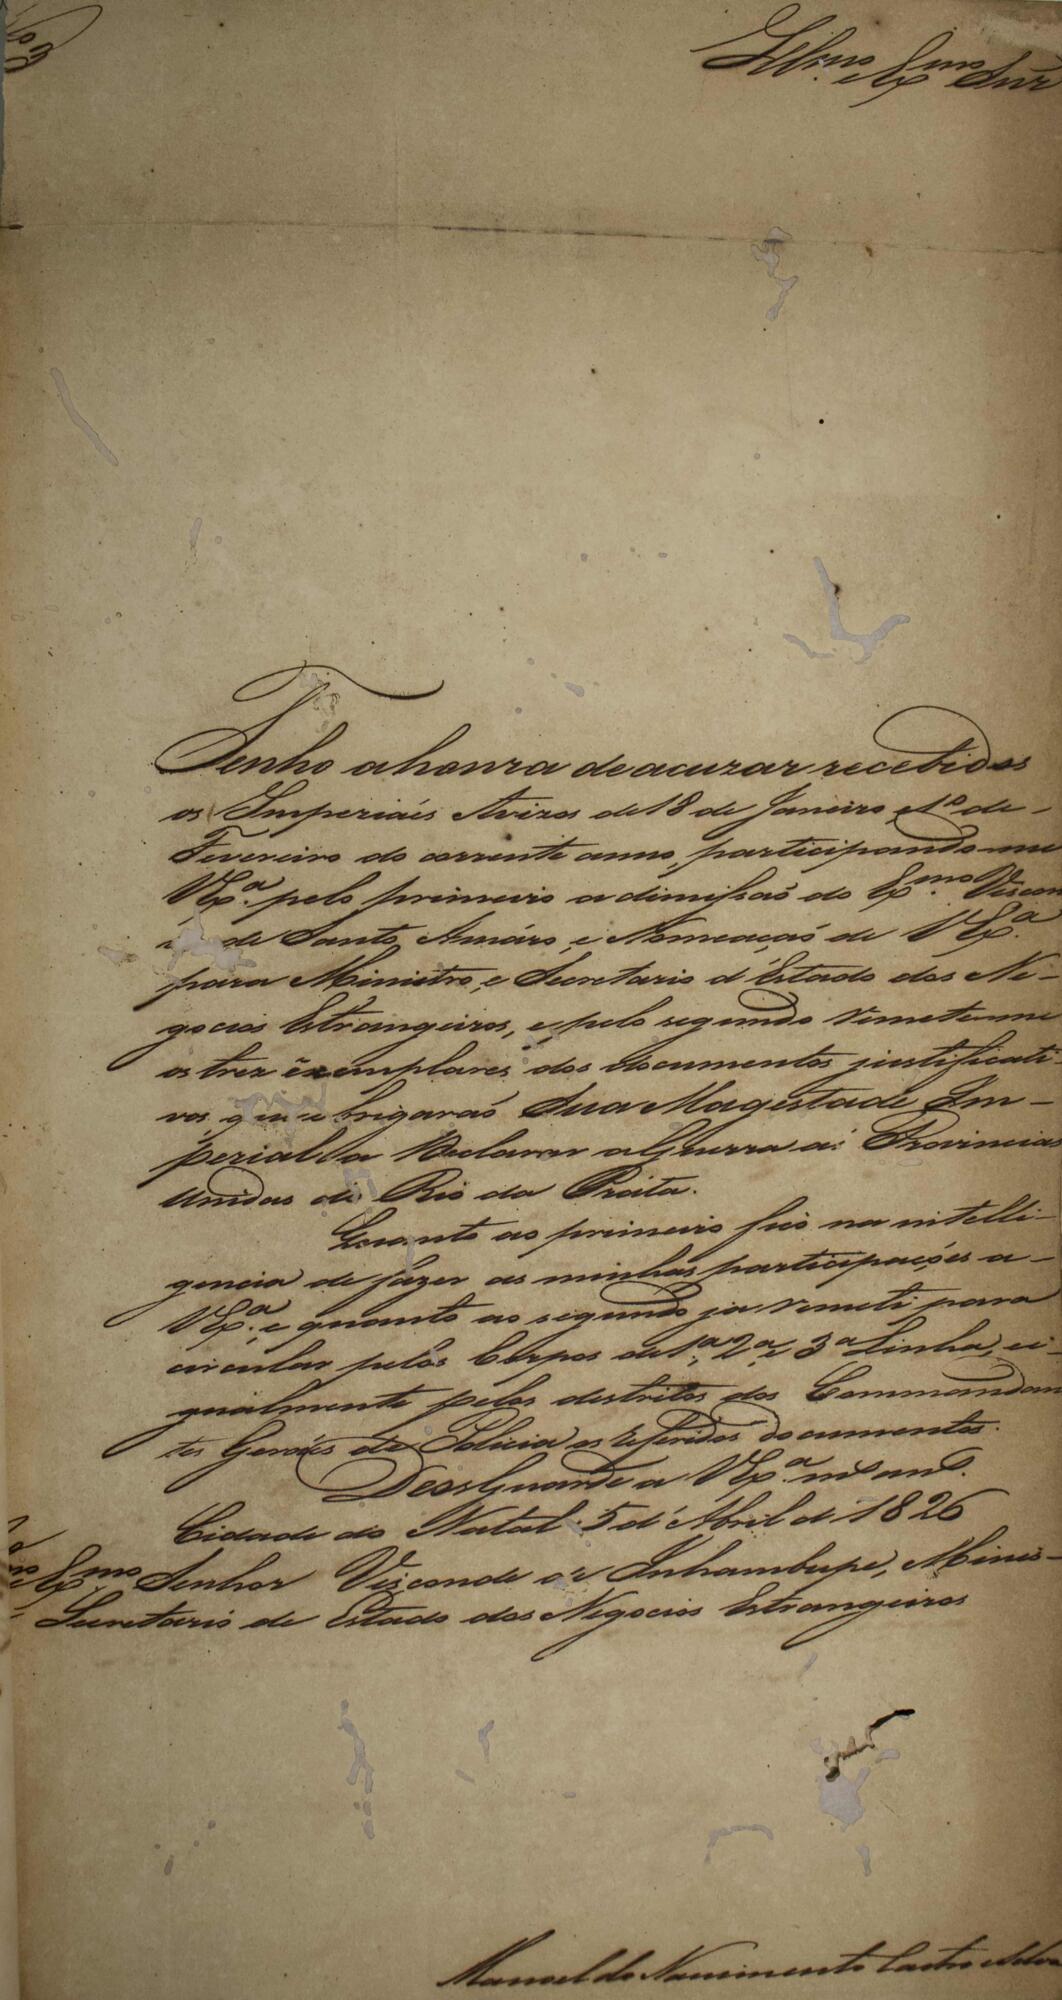 Illmo. e Exmo. Snr
Tenho a honra de acuzar recebidos
os Imperiaés Avizos de 18 de Janeiro, e 1º de
Fevereiro do corrente anno, participando-me
V Exª. pelo primeiro a dimissaõ do Exmo. Viscon
de de Santo Amáro, e Nomeaçaõ de V Exª.
para Ministro, e Secretario d'Estado dos Ne-
gocios Estrangeiros, e pelo segundo remete-me
os trez exemplares dos documentos justificati
vos, que obrigaraõ Sua Magestade Im-
perial a Declarar a Guerra ás Provincias
Unidas do Rio da Praita.
Quanto ao primeiro fico na intelli-
gencia de fazer as minhas participaçoẽs a
V Exª. e quanto ao segundo ja remeti para
circular pelos Corpos de 1ª, 2ª, e 3ª Linha, e i-
gualmente pelos destritos dos Commandan
tes Geraés de Policia os referidos documentos.
Deos Guarde a V Exª. ms. ans.
Cidade do Natal 5 d'Abril de 1826
Exmo. Senhor Visconde de Inhambupe, Minis-
Secretario de Estado dos Negocios Estrangeiros
Manoel do Nascimento Castro e Silva